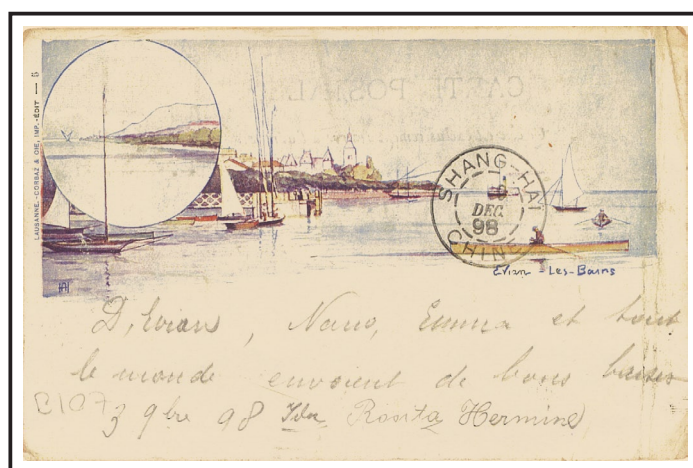 LAUSANNE.-CORBAZ & CIE, IMP.-ÉDIT — 5
CARTE POSTALE
SHANG-HAÏ
DEC
98
CHINE
Evian - Les - Bains
D'Evian, Nano, Emma et tout
le monde envoient de bons baisers
C107 3 9bre 98 Ida Rosita Hermine